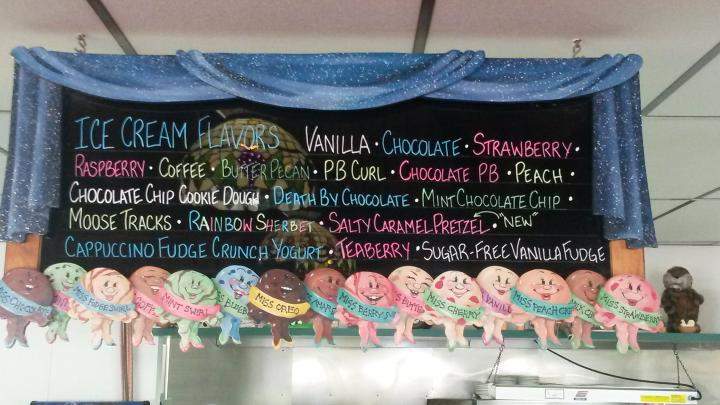 ICE CREAM FLAVORS VANILLA • CHOCOLATE • STRAWBERRY •
RASPBERRY • COFFEE • BUTTER PECAN • PB CURL • CHOCOLATE PB • PEACH •
CHOCOLATE CHIP COOKIE DOUGH • DEATH BY CHOCOLATE • MINT CHOCOLATE CHIP •
MOOSE TRACKS • RAINBOW SHERBET • SALTY CARAMEL PRETZEL "NEW"
CAPPUCCINO FUDGE CRUNCH YOGURT • TEABERRY • SUGAR-FREE VANILLA FUDGE
MISS CHOCOLATE
MISS FUDGE SWIRL
MINT SWIRL
MISS OREO
MISS BERRY
MISS CHERRY
VANILL
MISS PEACH
MISS STRAWBERRY